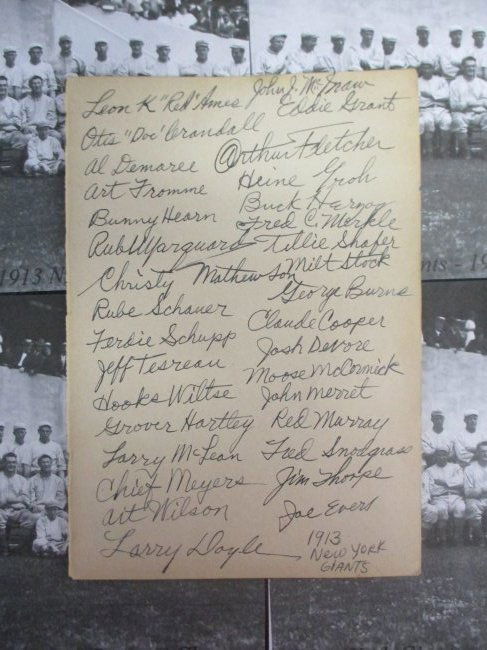 Leon K "Red" Ames
Otis "Doc" Crandall
Al Demaree
Art Fromme
Bunny Hearn
Rube Marquard
Christy Mathewson
Rube Schauer
Ferdie Schupp
Jeff Tesreau
Hooks Wiltse
Grover Hartley
Larry McLean
Chief Meyers
Art Wilson
Larry Doyle
John J. McGraw
Eddie Grant
Arthur Fletcher
Heine Groh
Buck Herzog
Fred C. Merkle
Tillie Shafer
Milt Stock
George Burns
Claude Cooper
Josh Devore
Moose McCormick
John Merret
Red Murray
Fred Snodgrass
Jim Thorpe
Joe Evers
1913
New York
Giants
1913 N
nts - 19